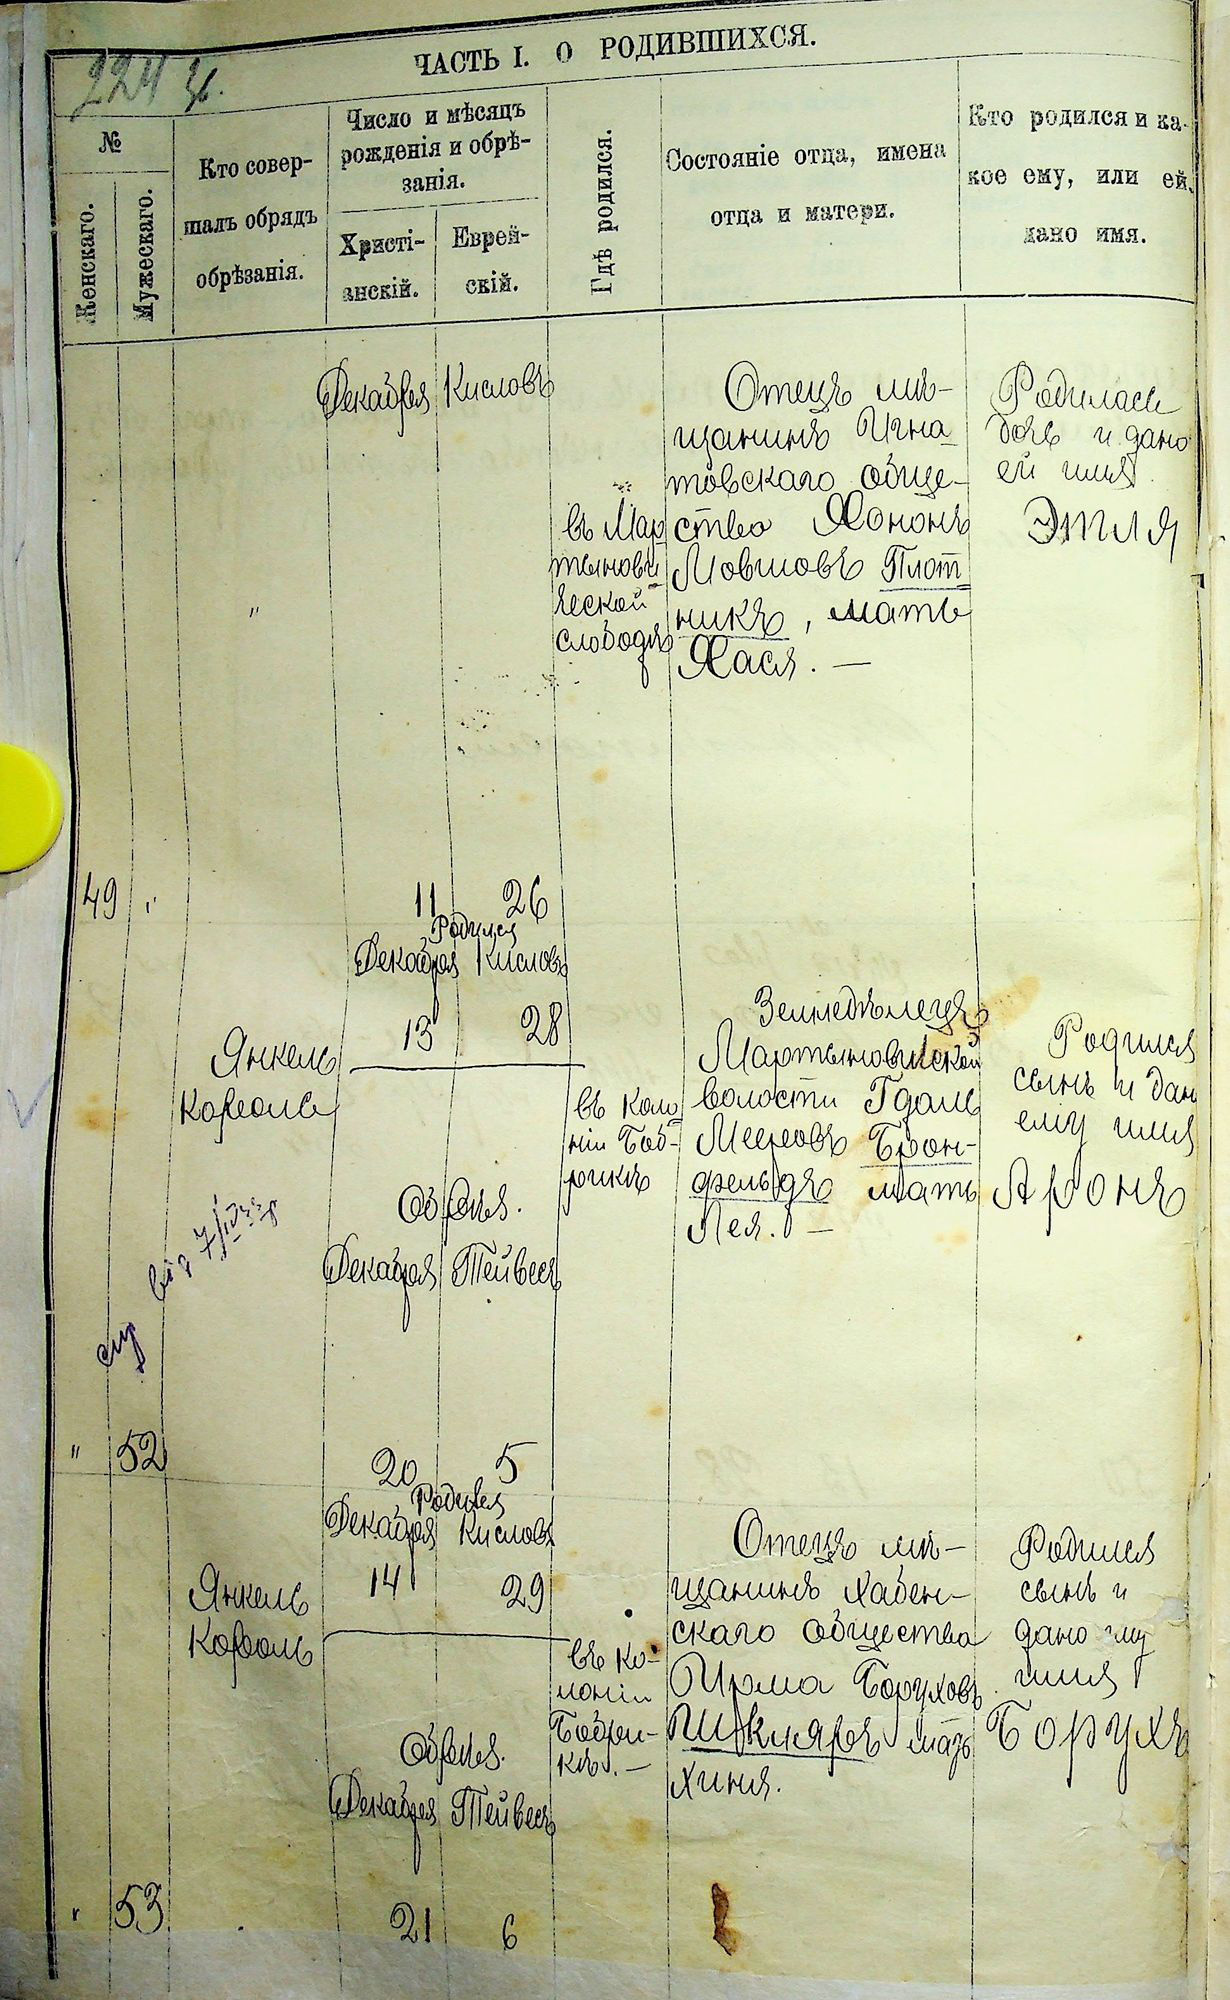 ЧАСТЬ I. О РОДИВШИХСЯ.
224
№
Женскаго.
Мужескаго.
Кто совер-
шалъ обрядъ
обрѣзанія.
Число и мѣсяцъ
рожденія и обрѣ-
занія.
Христі-
анскій.
Еврей-
скій.
Гдѣ родился.
Состояніе отца, имена
отца и матери.
Кто родился и ка-
кое ему, или ей,
дано имя.
49 "
"
Декабря Кисловъ
11 26
въ Мар
тынови
ческой
слободѣ
Отецъ мѣ-
щанинъ Игна
товскаго обще-
ства Хононъ
Мовшовъ Плот
никъ, мать
Хася. —
Родилась
дочь и дано
ей имя
Этля
" 52
Янкель
Король
Родился
Декабря Кисловъ
13 28
Обрѣз.
Декабря Тейвесъ
20 5
въ коло
ніи Боб-
рикъ
Земледѣлецъ
Мартыновичской
волости Гдаль
Мееровъ Брон-
фельдъ мать
Лея. —
Родился
сынъ и дан
ему имя
Аронъ
" 53
Янкель
Король
Родился
Декабря Кисловъ
14 29
Обрѣз.
Декабря Тейвесъ
21 6
въ ко-
лоніи
Бобри-
къ. —
Отецъ мѣ-
щанинъ Хабен-
скаго общества
Ирма Боруховъ
Шкляръ мать
Хиня.
Родился
сынъ и
дано ему
имя
Борухъ